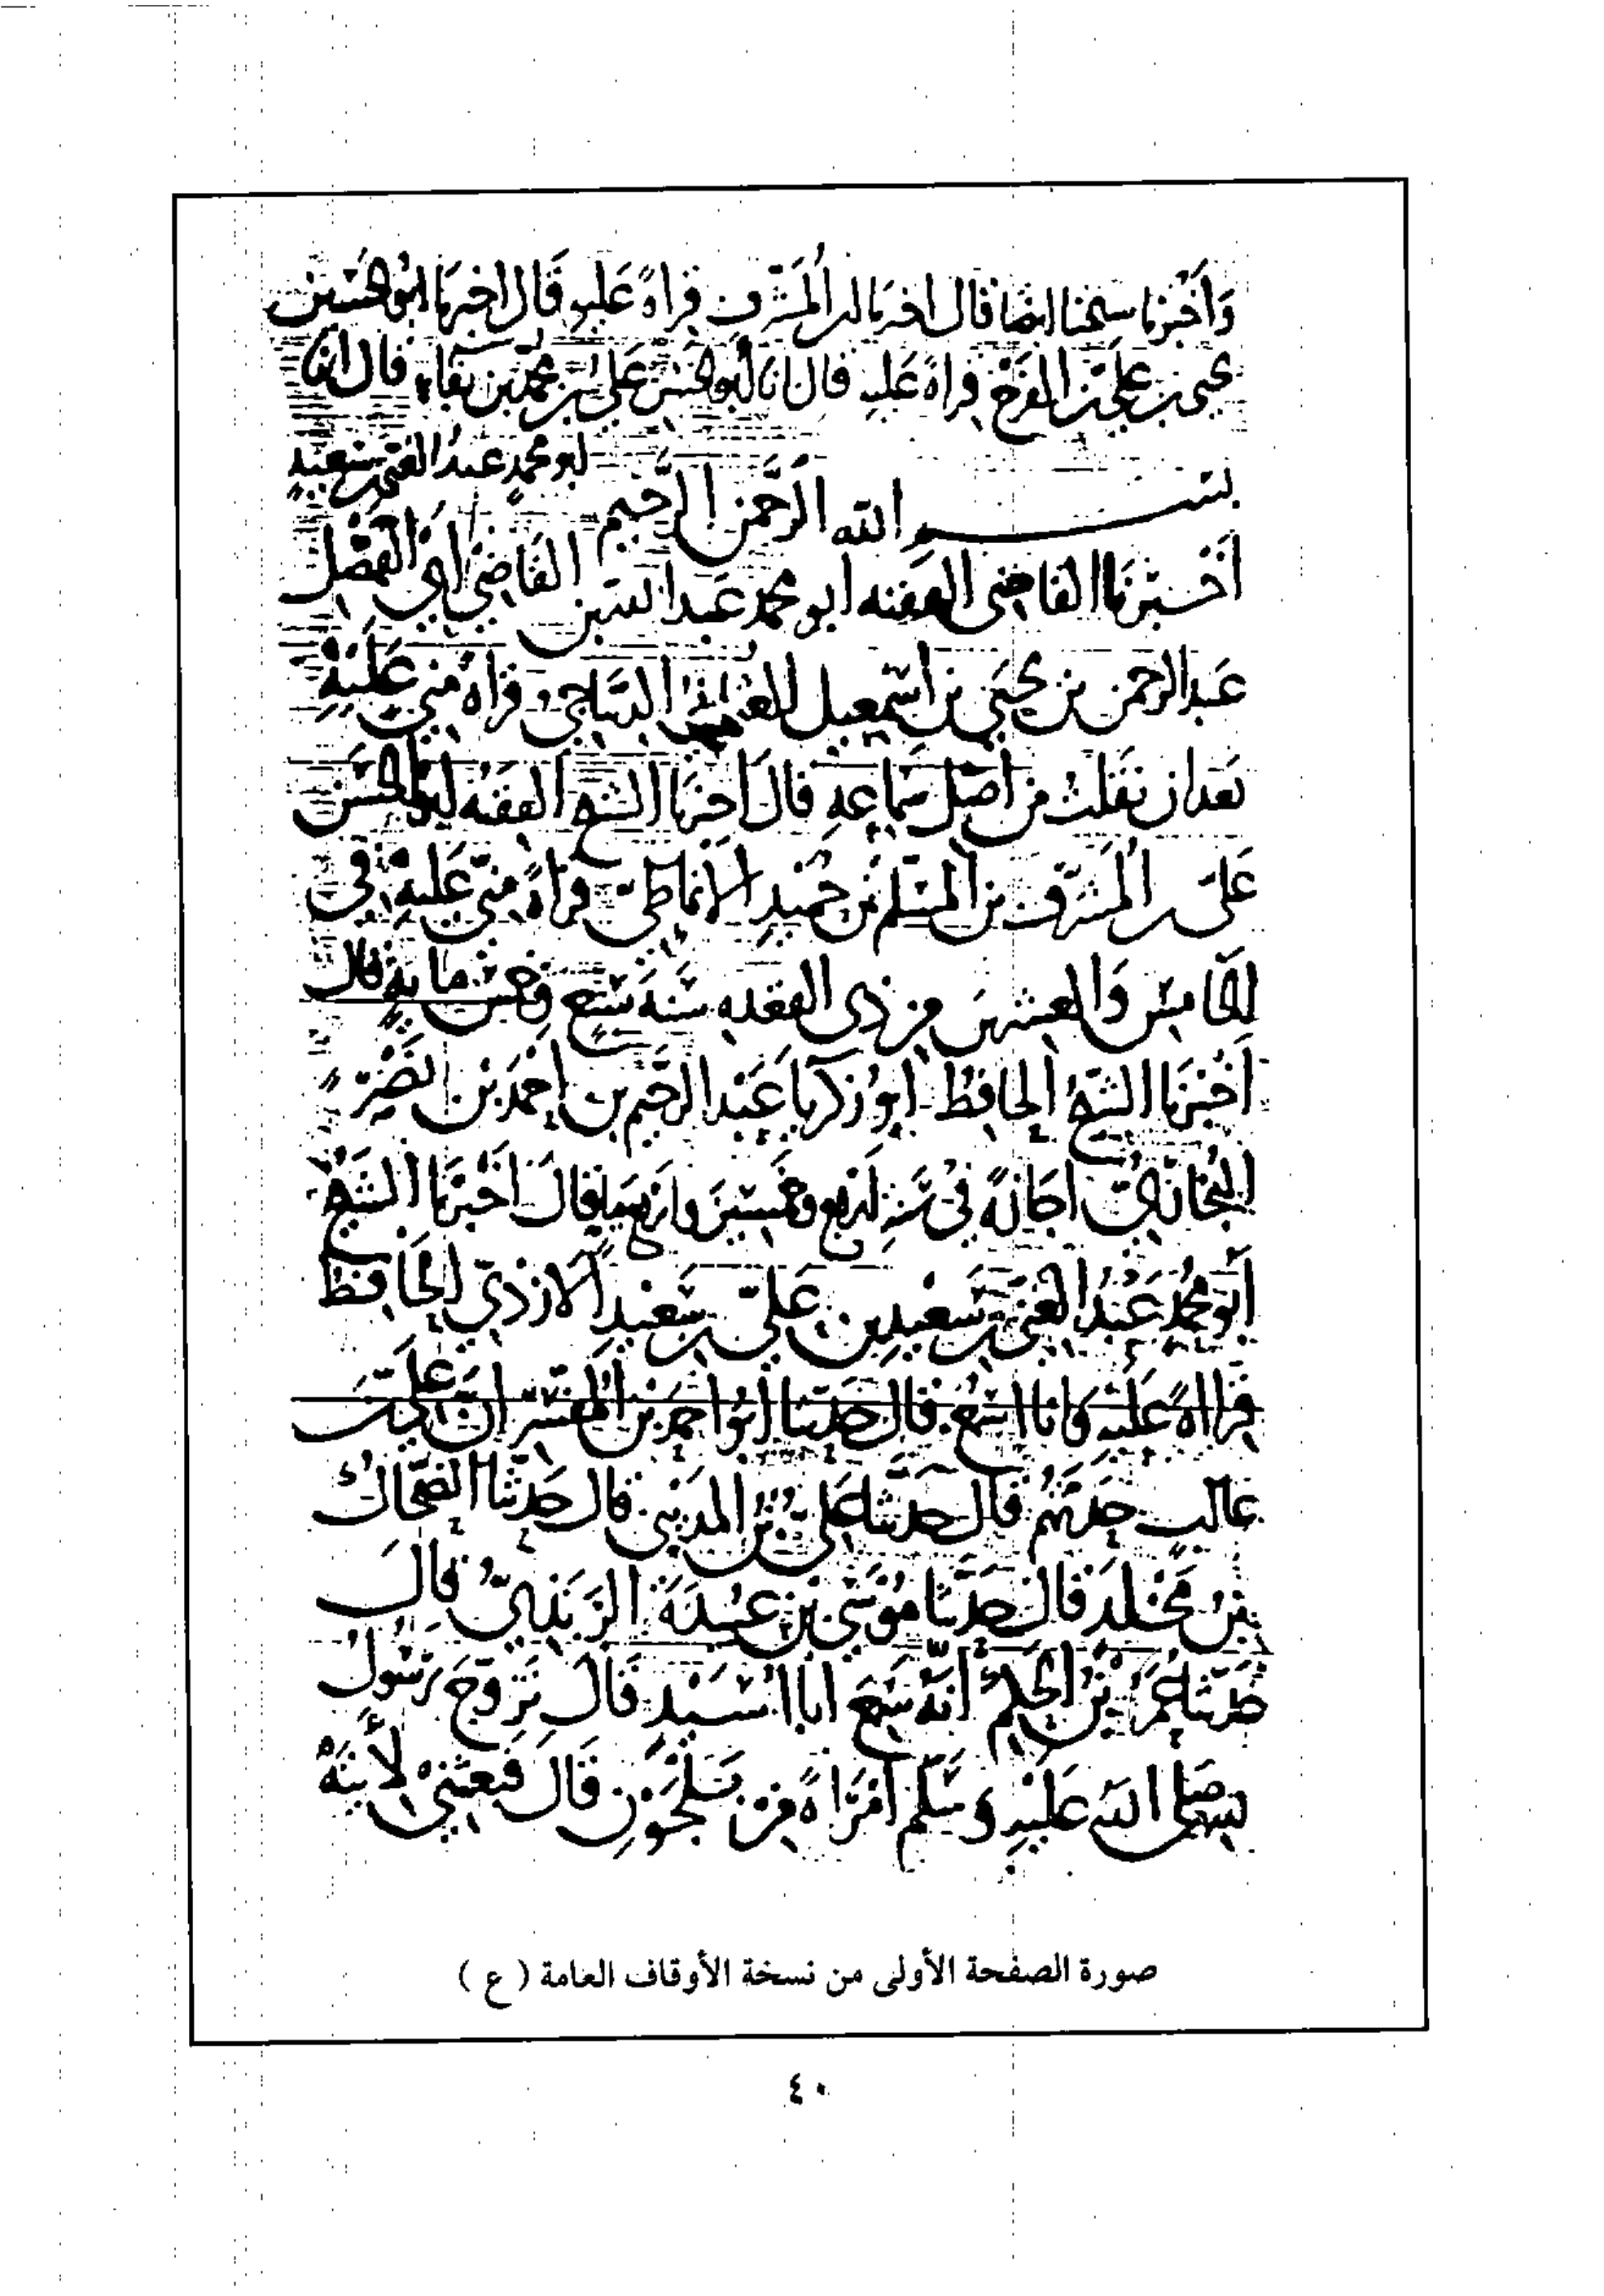 وَأَخْبَرَنا شيخنا ايضا قال اخبرنا ابن المشرف قراةً عَليهِ قَال اخبرنا ابو الحسين
يحيى بن علي بن الفرج قراةً عَليهِ قال انا ابو الحسن علي بن محمد بن بقاء قال انا
ابو محمد عبد الغني بن سعيد
بسم الله الرَّحمن الرَّحيم
أخبرنا القاضي الفقيه ابو محمد عَبد الله بن القَاضِي أبي الفَضْل
عَبد الرحمن بن يحيَى بن اسمعيل العثماني الديباجي قراةً مني عَلَيْهِ
بَعد ان نقلت من أصْل سَماعِهِ قالَ اخبرَنا الشيخ الفقيه ابو الحسَن
عَلي بن المشَرَّف بن المُسَلَّم بن حُمَيدٍ الانماطيّ قراةً منّي عَليهِ في
الخامِس وَالعشرين من ذي القعده سَنةَ سَبعٍ وخمس مايةٍ قال
اَخْبَرَنا الشيخُ الحافِظ ابُو زكريا عَبد الرحيم بن احمدَ بن نصْرٍ
البُخَارِيّ اجازةً في سَنةِ اربع وخمسينَ واربعمايةٍ قالَ اَخْبَرَنا الشيخ
أبو محمدٍ عَبْدُ الغَنيّ بن سَعيد بن عَليّ بن سَعيدٍ الازديّ الحَافِظ
قرااةً عَلَيْهِ وَانا اسْمَعُ قال حَدثنا ابُو احمدَ بن المُفسّر انّ عَليّ بن
غالبٍ حَدثهُم قال حَدَّثنا عَليُّ بنُ المدَيني قال حَدثنا الضَحّاك
بنُ مَخْلَد قال حَدَّثنا مُوْسَى بن عُبَيدَةَ الرَّبَذيّ قالَ
حَدثنا عُمَرُ بنُ الحَكَم أنّهُ سَمِعَ ابا اُسَيْدٍ قَالَ تَزَوَّجَ رَسُولُ
اللهِ صَلى الله عَلَيْهِ وَسَلّم امرَاةً مِن بَلْجَوْنِ قَالَ فبَعَثني لأبيه
صورة الصفحة الأولى من نسخة الأوقاف العامة ( ع )
٤٠